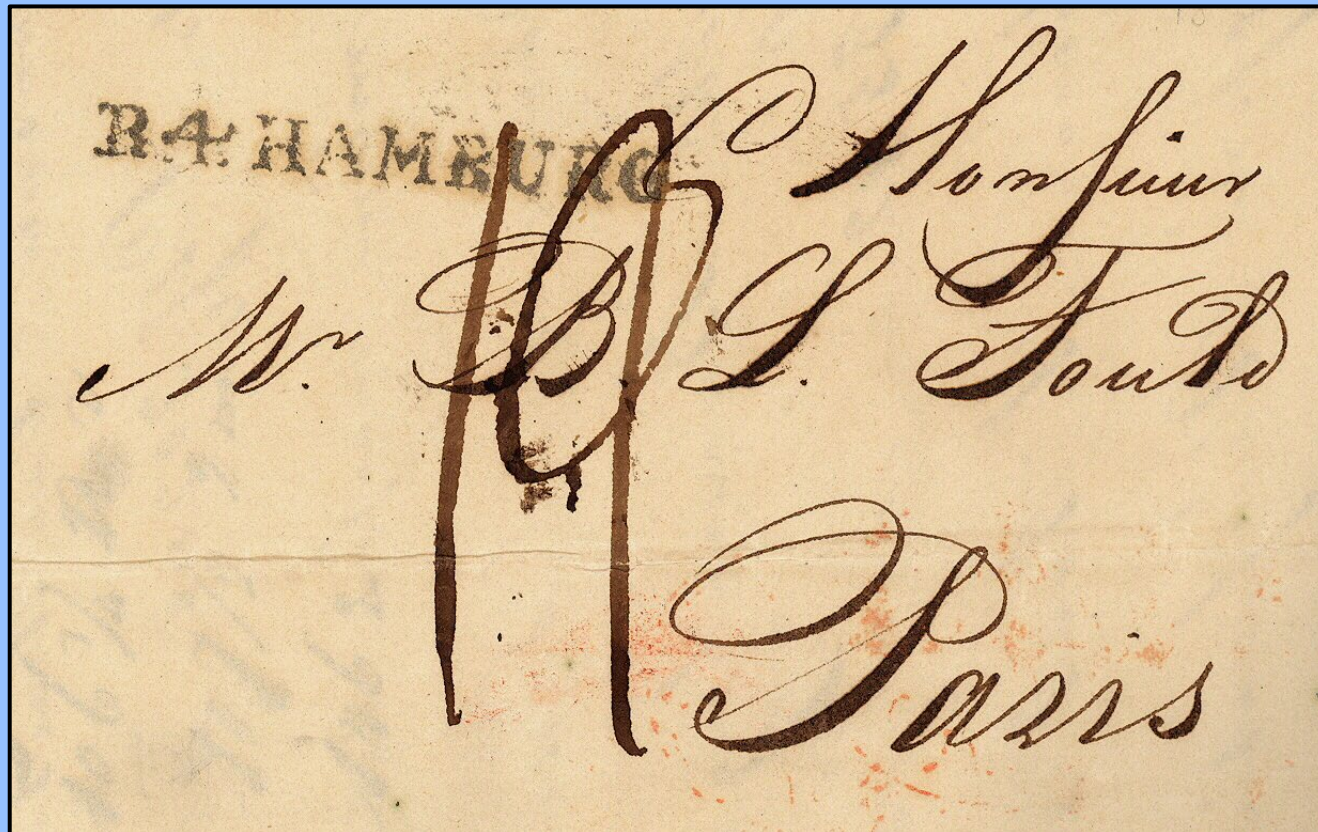 R.4. HAMBURG
Monsieur
Mr. B L. Fould
19
Paris